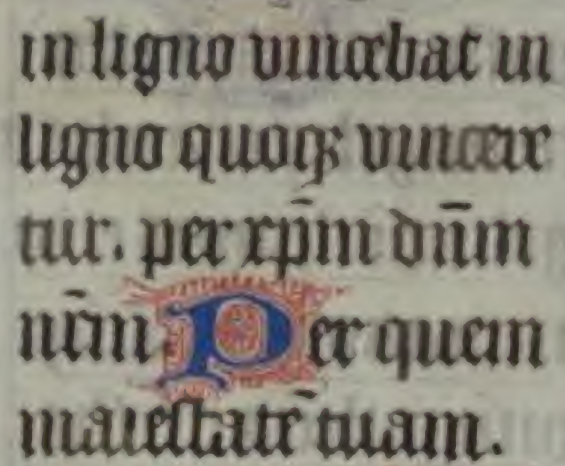 in ligno vincebat in
ligno quoqꝫ vincere
tur. per xp̄m dn̄m
nr̄m Per quem
maiestatē tuam.